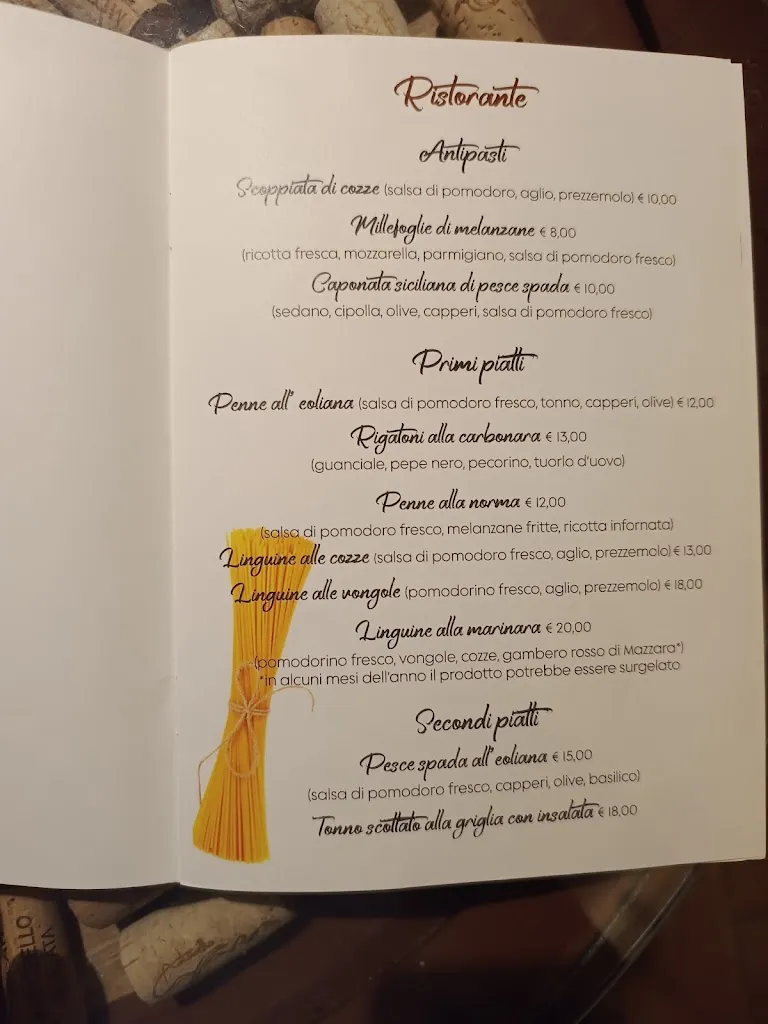 Ristorante
Antipasti
Scoppiata di cozze (salsa di pomodoro, aglio, prezzemolo) € 10,00
Millefoglie di melanzane € 8,00
(ricotta fresca, mozzarella, parmigiano, salsa di pomodoro fresco)
Caponata siciliana di pesce spada € 10,00
(sedano, cipolla, olive, capperi, salsa di pomodoro fresco)
Primi piatti
Penne all' eoliana (salsa di pomodoro fresco, tonno, capperi, olive) € 12,00
Rigatoni alla carbonara € 13,00
(guanciale, pepe nero, pecorino, tuorlo d'uovo)
Penne alla norma € 12,00
(salsa di pomodoro fresco, melanzane fritte, ricotta infornata)
Linguine alle cozze (salsa di pomodoro fresco, aglio, prezzemolo) € 13,00
Linguine alle vongole (pomodorino fresco, aglio, prezzemolo) € 18,00
Linguine alla marinara € 20,00
(pomodorino fresco, vongole, cozze, gambero rosso di Mazzara*)
*in alcuni mesi dell'anno il prodotto potrebbe essere surgelato
Secondi piatti
Pesce spada all' eoliana € 15,00
(salsa di pomodoro fresco, capperi, olive, basilico)
Tonno scottato alla griglia con insalata € 18,00